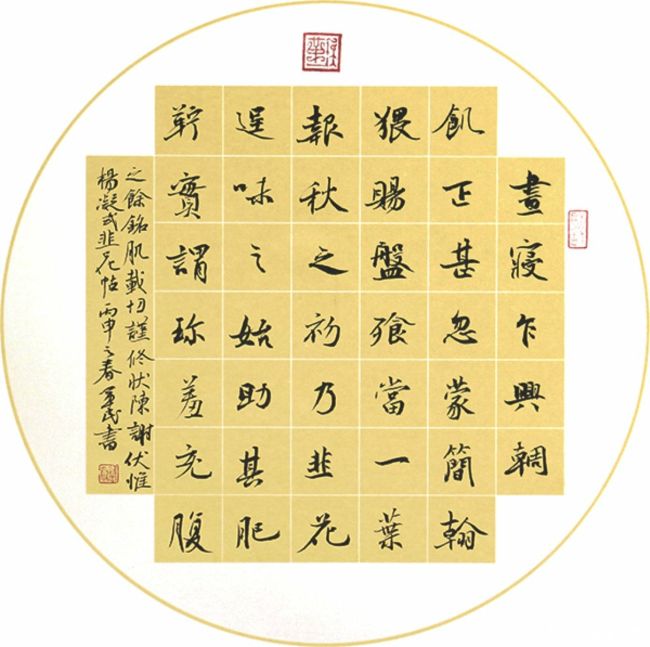 晝寢乍興輖
飢正甚忽蒙簡翰
猥賜盤飧當一葉
報秋之初乃韭花
逞味之始助其肥
羜實謂珍羞充腹
之餘銘肌載切謹修狀陳謝伏惟
楊凝式韭花帖 丙申之春 書